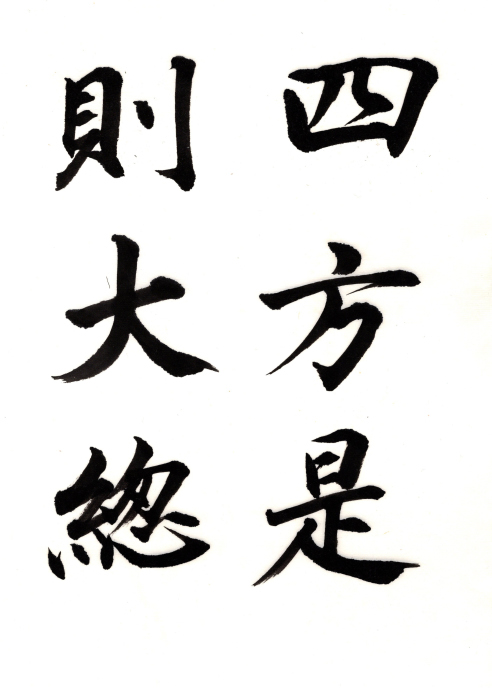 四方是
則大総